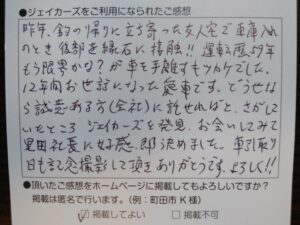 ●ジェイカーズをご利用になられたご感想
昨年、釣の帰りに立ち寄った友人宅で車庫入れ
のとき後部を縁石に接触!! 運転歴57年
もう限界かな?が車を手離すキッカケでした。
12年間お世話になった愛車です。どうせなら
誠意ある方(会社)に託せればと、さがして
いたところ ジェイカーズを発見、お会いしてみて
黒田社長に好感、即決めました。車引取り
日も記念撮影して頂きありがとうです。よろしく!!
●頂いたご感想をホームページに掲載してもよろしいですか?
掲載は匿名で行います。(例:町田市 K 様)
☑掲載してよい □掲載不可